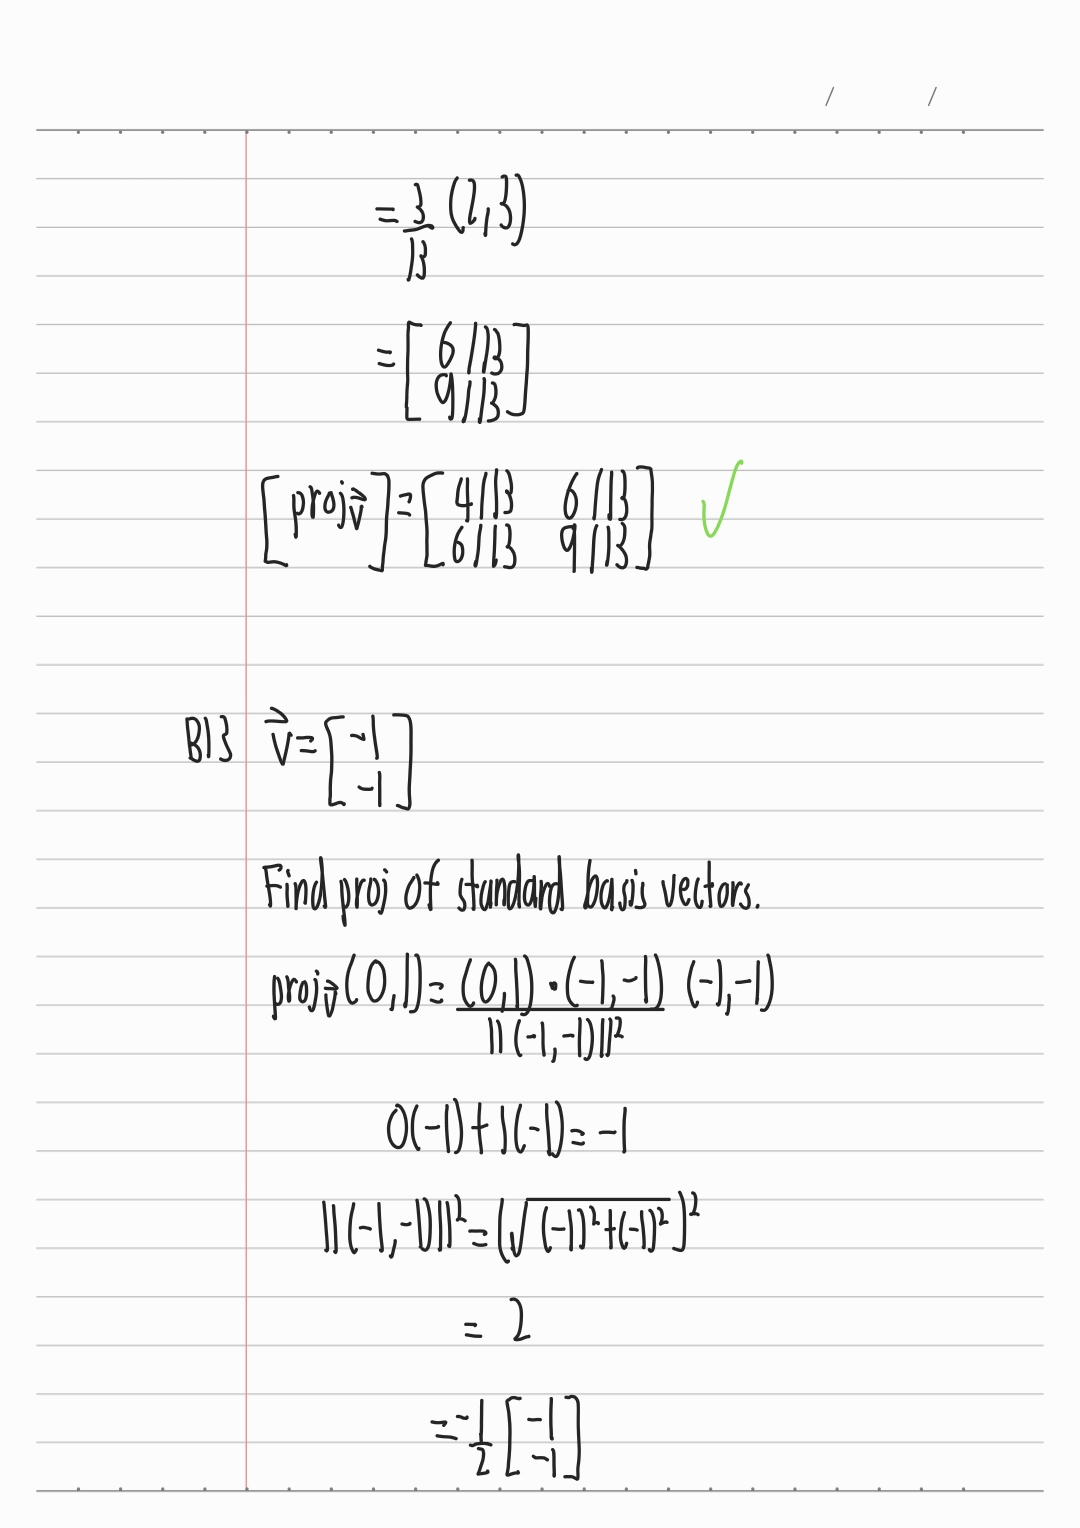 = 3/13 (2,3)
= [6/13 9/13]
[proj v⃗] = [4/13 6/13
6/13 9/13] ✓
B13 v⃗ = [-1 -1]
Find proj of standard basis vectors.
proj v⃗ (0,1) = (0,1)•(-1,-1) / ||(-1,-1)||² (-1,-1)
0(-1)+1(-1) = -1
||(-1,-1)||² = (√(-1)²+(-1)²)²
= 2
= -1/2 [-1 -1]